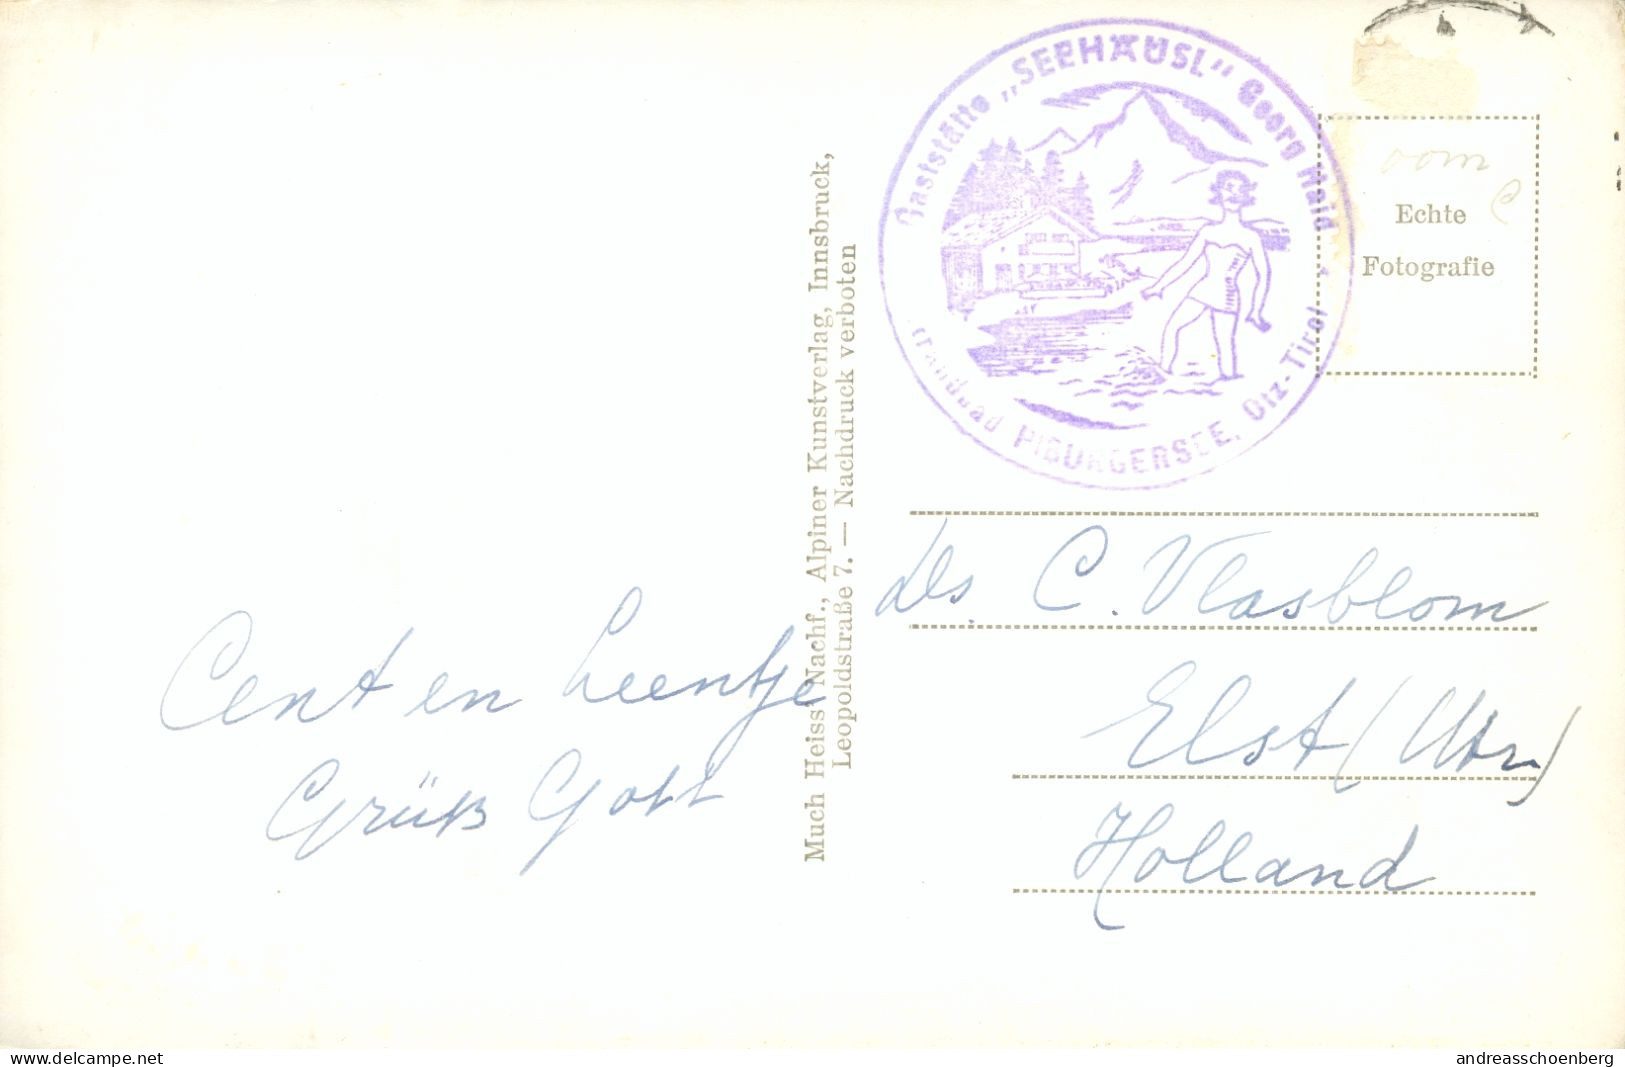 Gaststätte „SEEHÄUSL" Georg Haid
Strandbad PIBURGERSEE, Ötz-Tirol
Echte
Fotografie
Much Heiss' Nachf., Alpiner Kunstverlag, Innsbruck,
Leopoldstraße 7. — Nachdruck verboten
Cent en Leentje
Grüß Gott
Ds. C. Vlasblom
Elst (Utr)
Holland
www.delcampe.net
andreasschoenberg